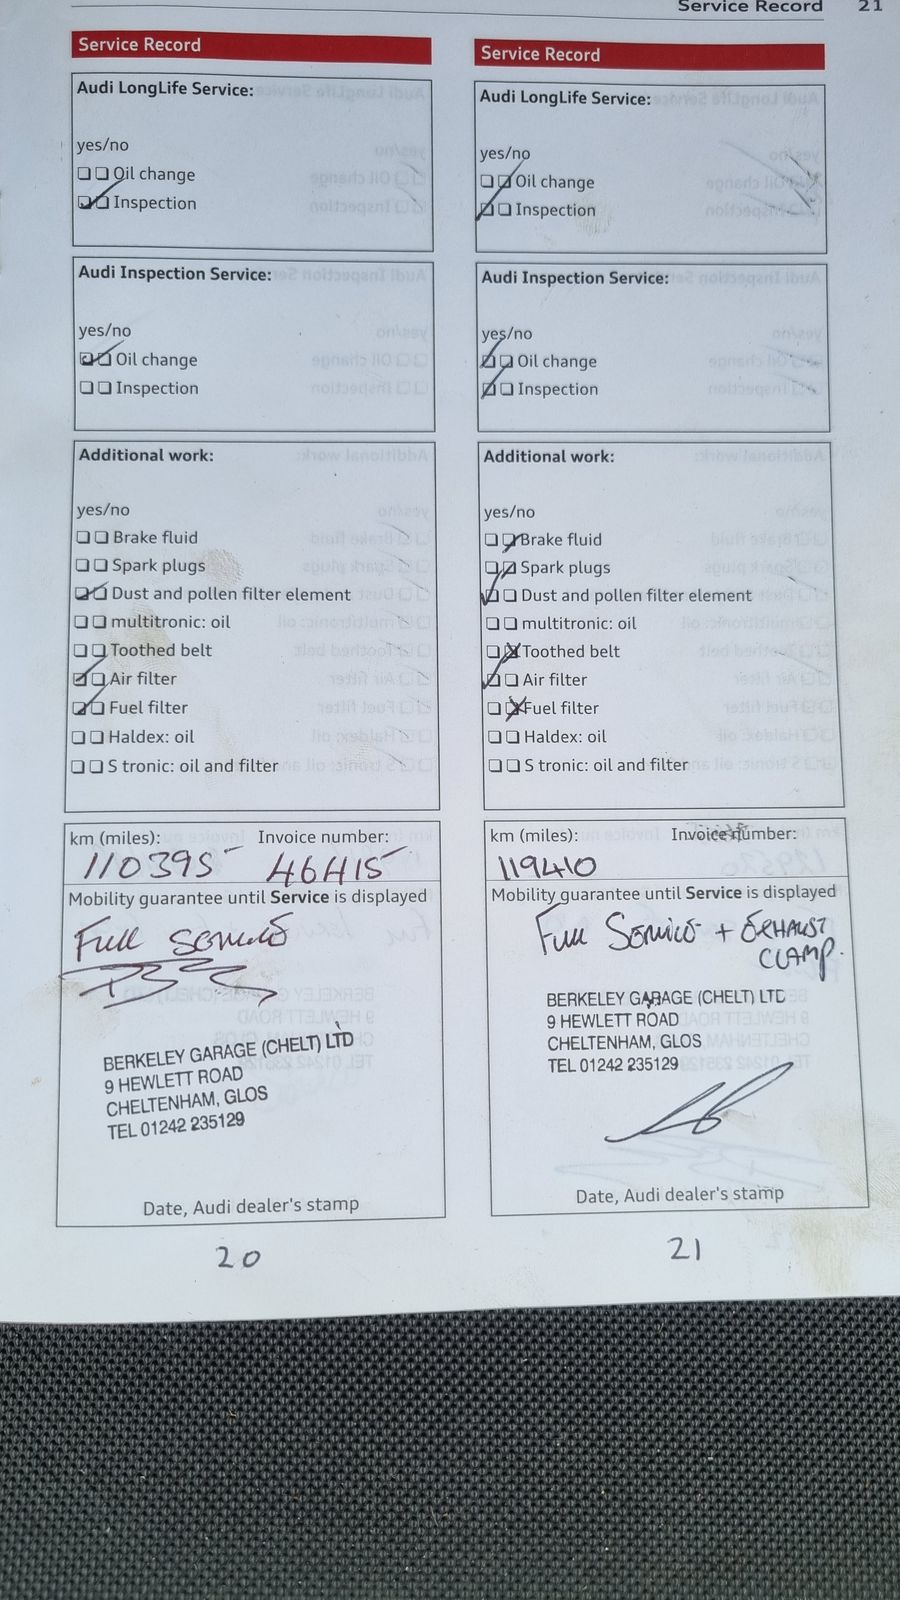 Service Record 21
Service Record
Audi LongLife Service:
yes/no
Oil change
Inspection
Audi Inspection Service:
yes/no
Oil change
Inspection
Additional work:
yes/no
Brake fluid
Spark plugs
Dust and pollen filter element
multitronic: oil
Toothed belt
Air filter
Fuel filter
Haldex: oil
S tronic: oil and filter
km (miles): Invoice number:
110395 46415
Mobility guarantee until Service is displayed
Full Service
BERKELEY GARAGE (CHELT) LTD
9 HEWLETT ROAD
CHELTENHAM, GLOS
TEL 01242 235129
Date, Audi dealer's stamp
20
Service Record
Audi LongLife Service:
yes/no
Oil change
Inspection
Audi Inspection Service:
yes/no
Oil change
Inspection
Additional work:
yes/no
Brake fluid
Spark plugs
Dust and pollen filter element
multitronic: oil
Toothed belt
Air filter
Fuel filter
Haldex: oil
S tronic: oil and filter
km (miles): Invoice number:
119410
Mobility guarantee until Service is displayed
Full Service + EXHAUST
CLAMP.
BERKELEY GARAGE (CHELT) LTD
9 HEWLETT ROAD
CHELTENHAM, GLOS
TEL 01242 235129
Date, Audi dealer's stamp
21